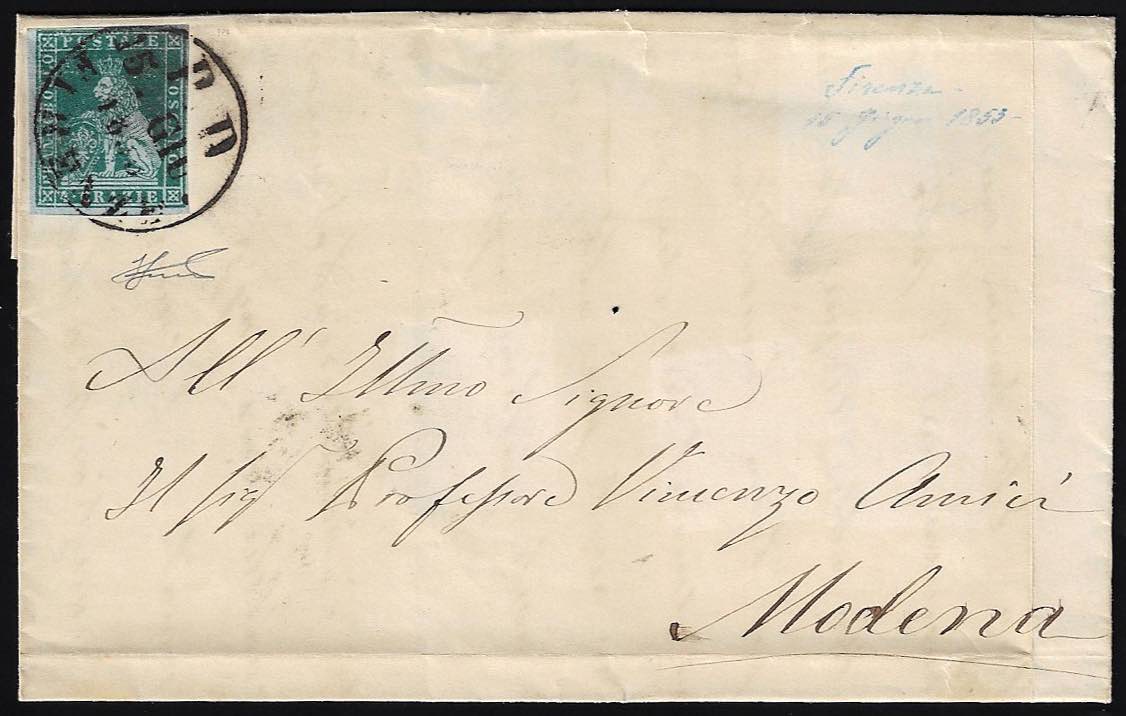 FRANCOBOLLO
POSTALE
TOSCANO
4 CRAZIE
15 GIU
Firenze
15 Giugno 1853
All' Illmo Signore
Il Sigr Professore Vincenzo Amici
Modena